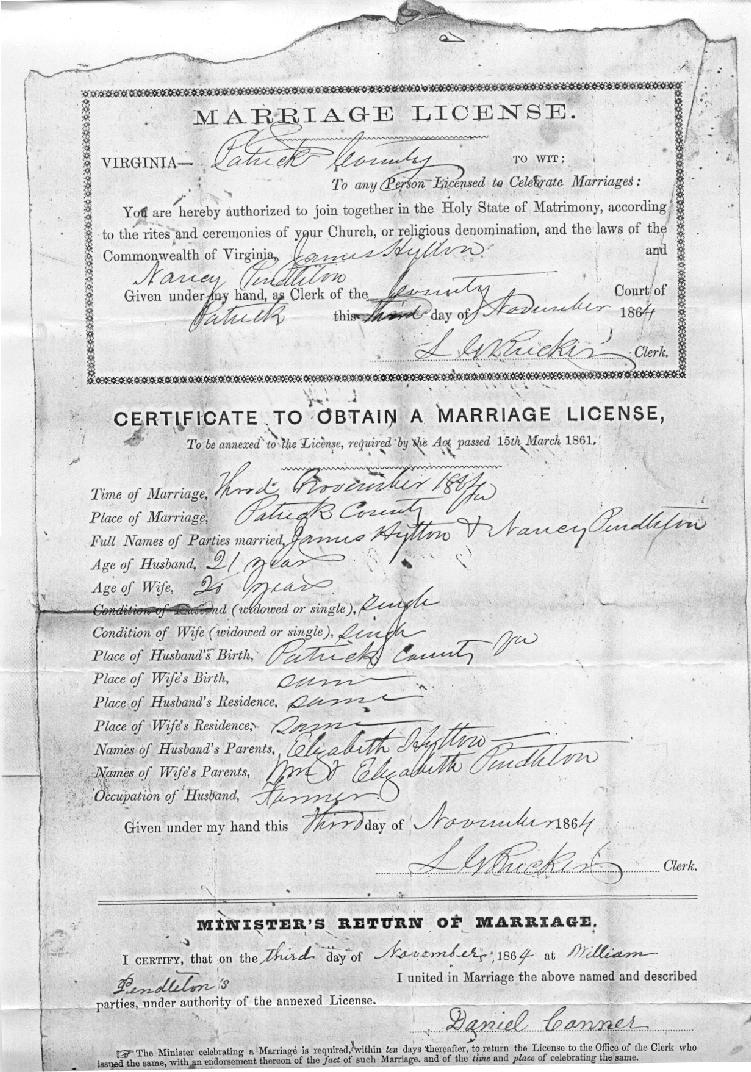 MARRIAGE LICENSE.
VIRGINIA— Patrick County TO WIT:
To any Person Licensed to Celebrate Marriages:
You are hereby authorized to join together in the Holy State of Matrimony, according
to the rites and ceremonies of your Church, or religious denomination, and the laws of the
Commonwealth of Virginia, James Hylton and
Nancy Pendleton
Given under my hand, as Clerk of the County Court of
Patrick this third day of November 1864
Clerk.
CERTIFICATE TO OBTAIN A MARRIAGE LICENSE,
To be annexed to the License, required by the Act passed 15th March 1861.
Time of Marriage, November 1864
Place of Marriage, Patrick County Va
Full Names of Parties married, James Hylton & Nancy Pendleton
Age of Husband, 21 years
Age of Wife, 20 years
Condition of Husband (widowed or single), single
Condition of Wife (widowed or single), single
Place of Husband's Birth, Patrick County Va
Place of Wife's Birth, same
Place of Husband's Residence, same
Place of Wife's Residence, same
Names of Husband's Parents, Elizabeth Hylton
Names of Wife's Parents, Wm & Elizabeth Pendleton
Occupation of Husband, Farmer
Given under my hand this third day of November 1864
Clerk.
MINISTER'S RETURN OF MARRIAGE.
I CERTIFY, that on the third day of November, 1864 at William
Pendleton's I united in Marriage the above named and described
parties, under authority of the annexed License.
Daniel Conner
☞ The Minister celebrating a Marriage is required, within ten days thereafter, to return the License to the Office of the Clerk who
issued the same, with an endorsement thereon of the fact of such Marriage, and of the time and place of celebrating the same.